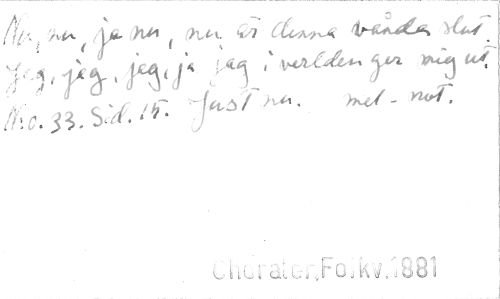 Nu, nu, ja nu, nu är denna vånda slut.
Jag, jag, jag, ja jag i verlden ger mig ut.
N:o. 33. Sid. 15. Just nu. mel-not.
Choraler,Folkv.1881